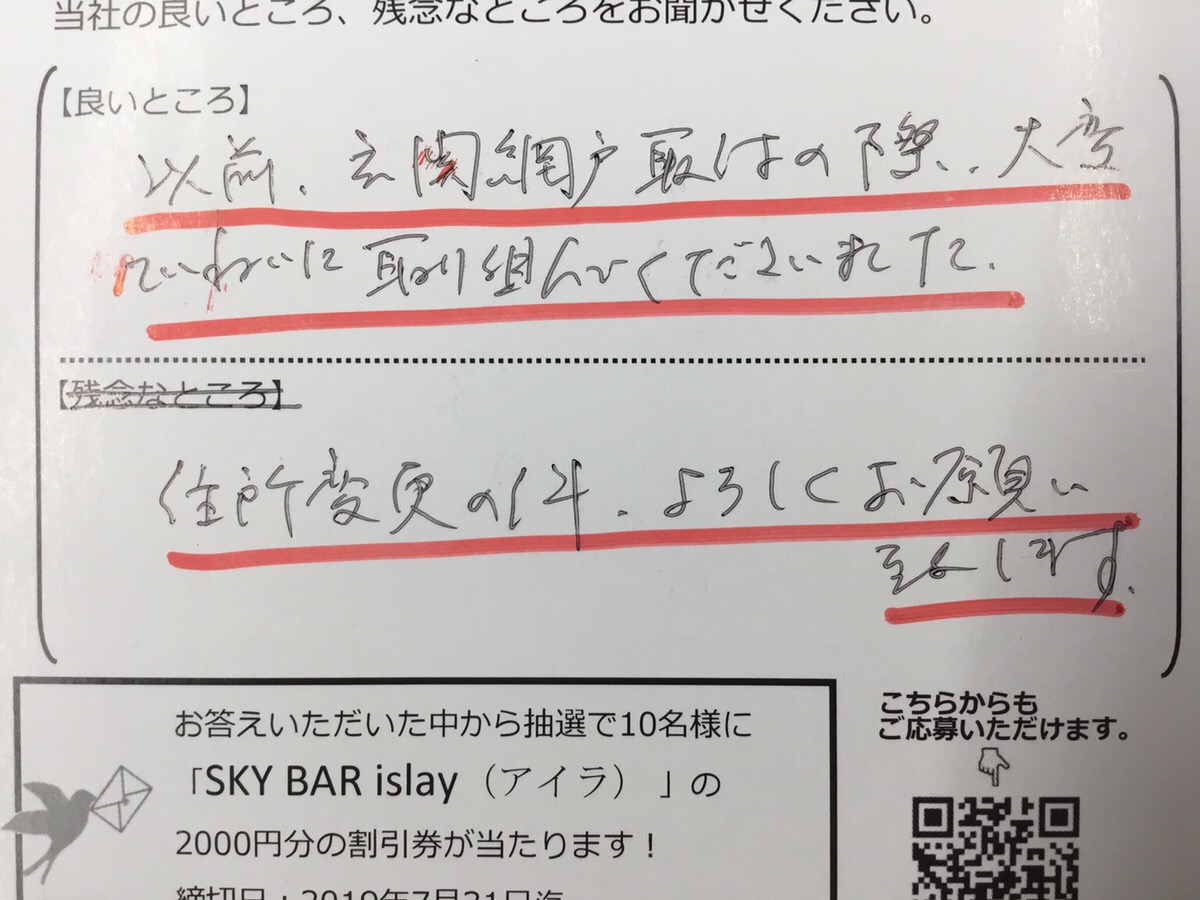 当社の良いところ、残念なところをお聞かせください。
【良いところ】
以前、玄関網戸取はの際、大変
ていねいに取り組んでくださいました。
【残念なところ】
住所変更の件、よろしくお願い
致します。
お答えいただいた中から抽選で10名様に
「SKY BAR islay（アイラ）」の
2000円分の割引券が当たります！
締切日：2019年7月31日迄
こちらからも
ご応募いただけます。